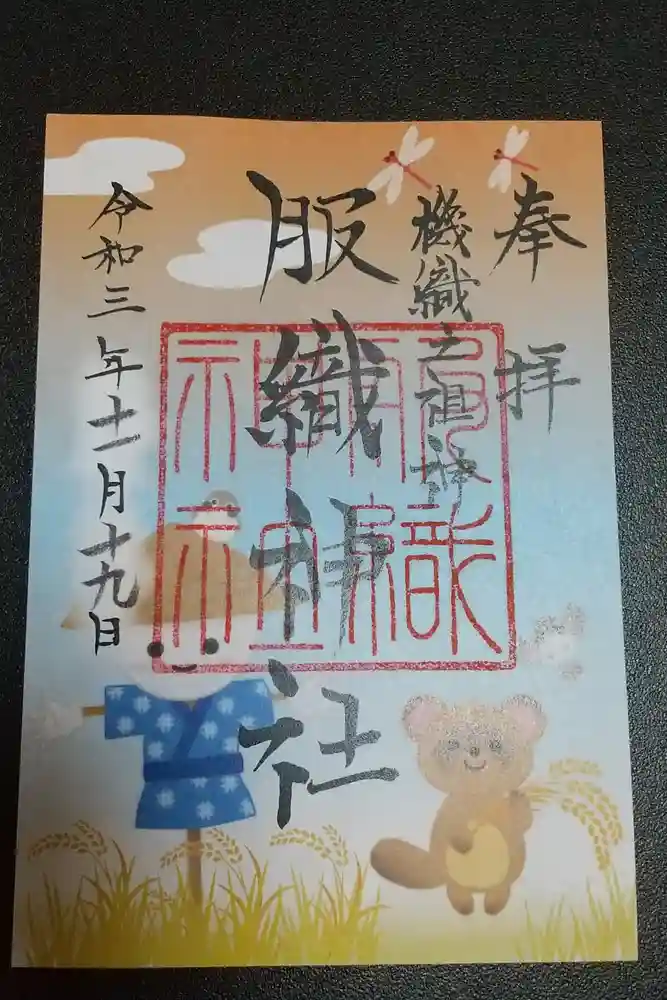 奉拝
機織之祖神
服織神社
令和三年十一月十九日